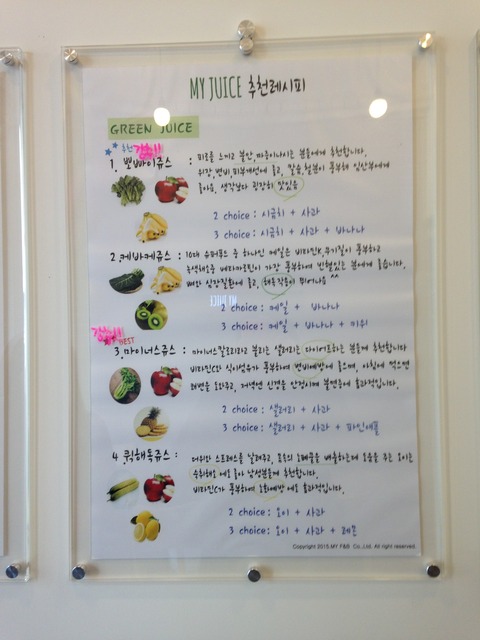 MY JUICE 추천레시피
GREEN JUICE
추천 강추!!
1. 뽀빠이쥬스 : 피로를 느끼고 불안, 짜증이나시는 분들에게 추천합니다.
위장, 변비, 피부개선에 좋고, 칼슘, 철분이 풍부해 임산부에게
좋아요. 생각보다 굉장히 맛있음
2 choice : 시금치 + 사과
3 choice : 시금치 + 사과 + 바나나
2. 케바케쥬스 : 10대 슈퍼푸드 중 하나인 케일은 비타민K, 무기질이 풍부하고
녹색채소중 베타카로틴이 가장 풍부하여 빈혈있는 분에게 좋습니다.
뼈와 심장질환에 좋고, 해독작용이 뛰어나요 ^^
2 choice : 케일 + 바나나
3 choice : 케일 + 바나나 + 키위
강추!!
BEST
3. 마이너스쥬스 : 마이너스칼로리라고 불리는 샐러리는 다이어트하는 분들께 추천합니다
비타민C와 식이섬유가 풍부하여 변비예방에 좋으며, 아침에 먹으면
쾌변을 도와주고, 저녁엔 신경을 안정시켜 불면증에 효과적입니다.
2 choice : 샐러리 + 사과
3 choice : 샐러리 + 사과 + 파인애플
4. 쿼해독쥬스 : 더위와 스트레스를 날려주고, 몸속의 노폐물을 배출하는데 도움을 주는 오이는
숙취해소 에도 좋아 남성분들께 추천합니다.
비타민C가 풍부하여 노화예방 에도 효과적입니다.
2 choice : 오이 + 사과
3 choice : 오이 + 사과 + 레몬
Copyright 2015 MY F&B Co.,Ltd. All right reserved.